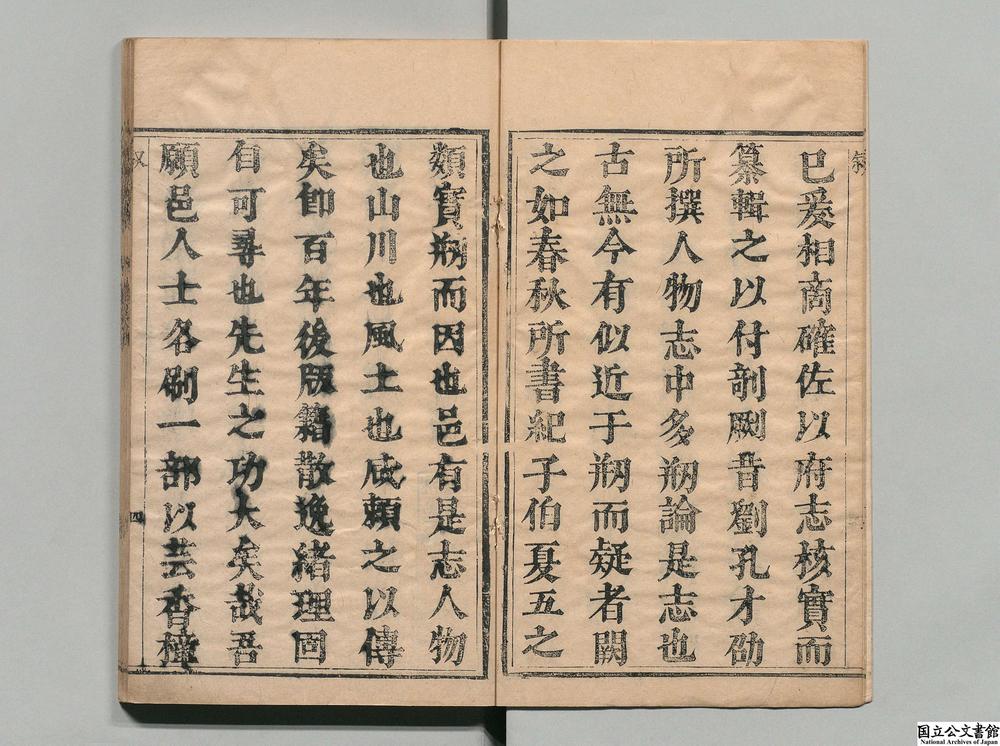 已爰相商確佐以府志核實而
纂輯之以付剞劂昔劉孔才劭
所撰人物志中多剏論是志也
古無今有似近于剏而疑者闕
之如春秋所書紀子伯夏五之
類實剏而因也邑有是志人物
也山川也風土也咸賴之以傳
矣卽百年後版籍散逸緒理固
自可尋也先生之功大矣哉吾
願邑人士各刷一部以芸香
四
国立公文書館
National Archives of Japan